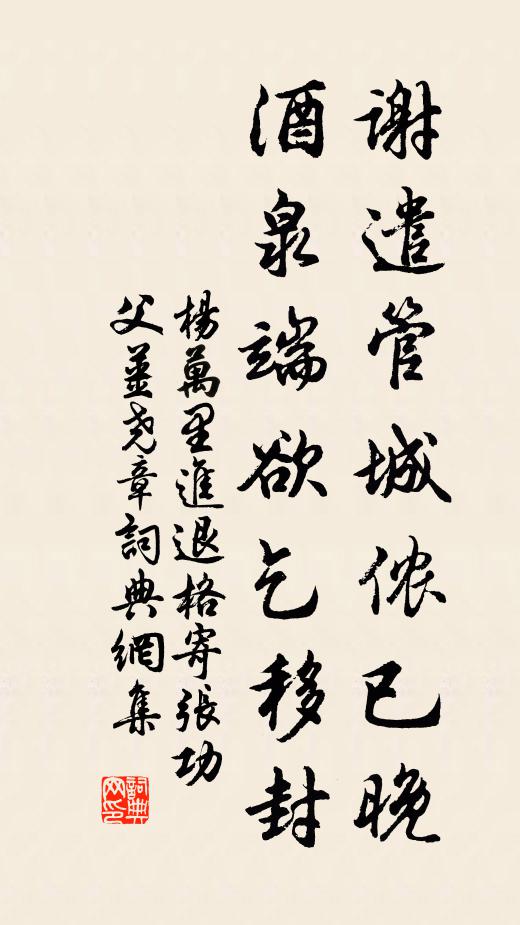 谢遣管城侬已晚
酒泉端欲乞移封
楊萬里進退格寄張功
父姜尧章詞典網集
詞典网印